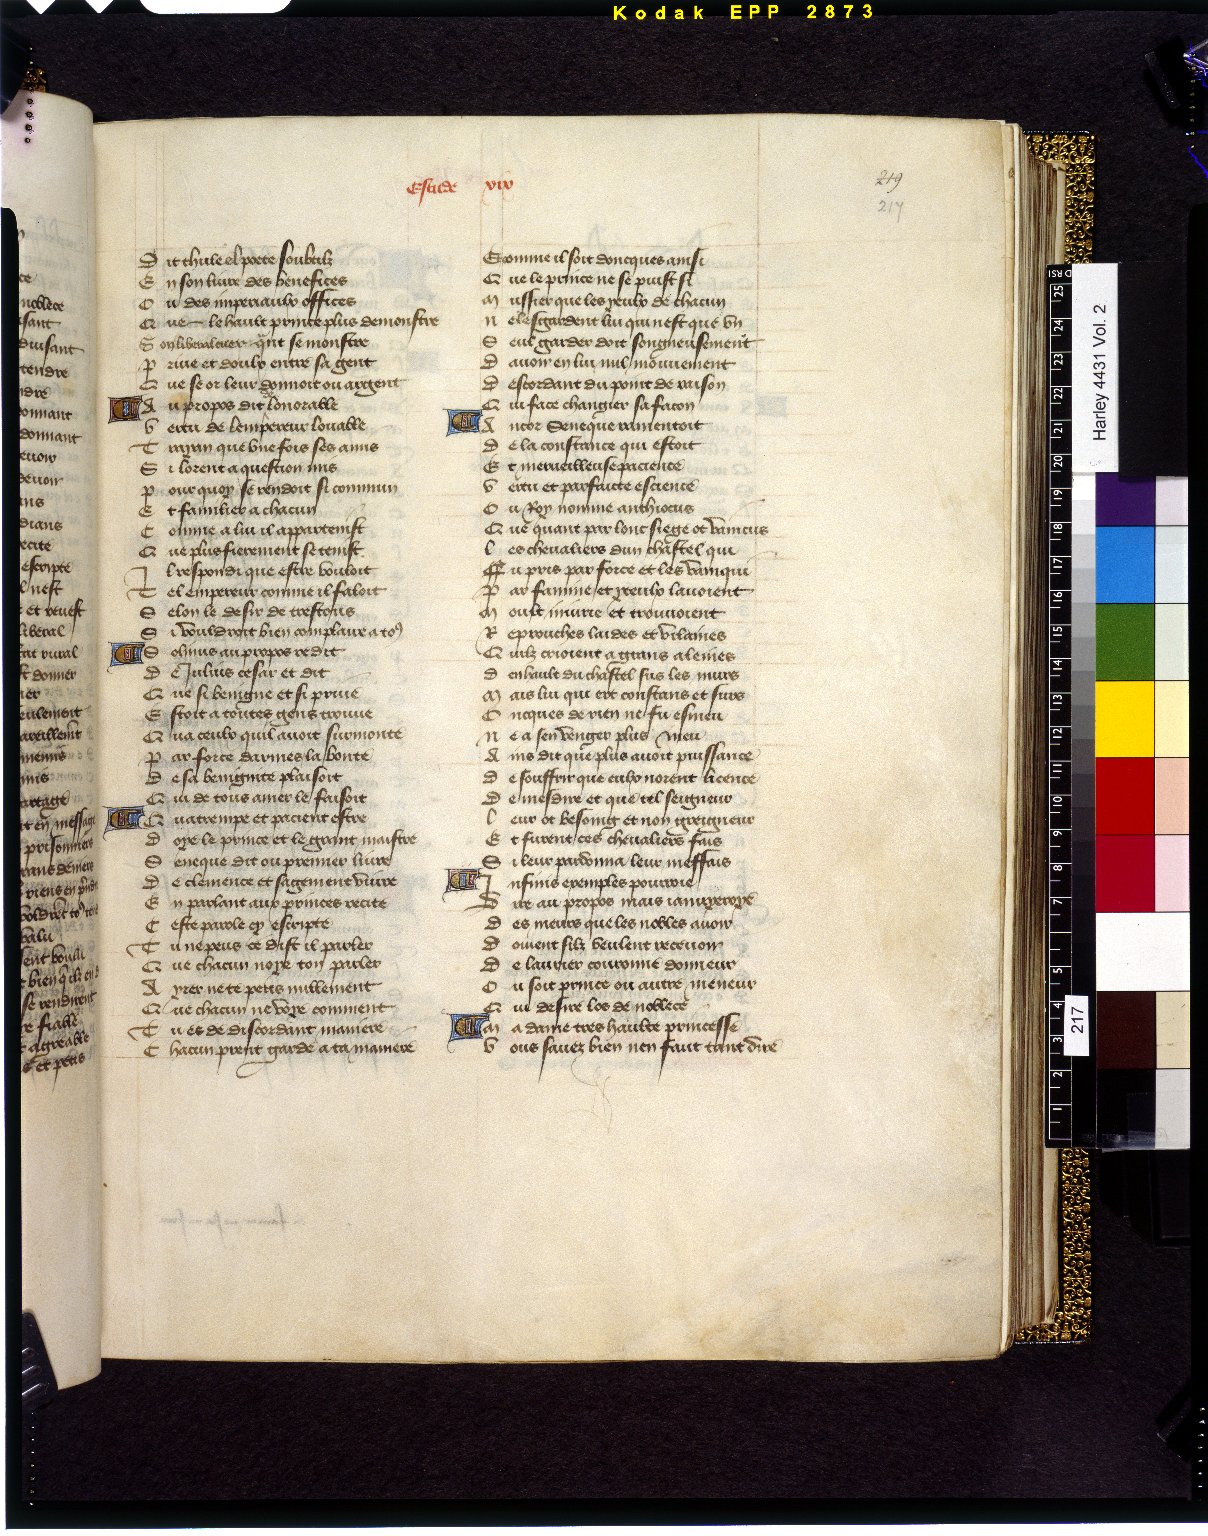 Kodak EPP 2873
219
217
D it thulle el poete soubtilz
E n son livre des benefices
O u des imperiaulx offices
Q ue le hault prince plus demonstre
S on liberal cuer quant se monstre
P rive et doulx entre sa gent
Q ue se or leur donnoit ou argent
A u propos dit lonorable
V ertu de lempereur louable
T rayan que une fois ses amis
S i lorent a question mis
P our quoy se rendoit si commun
E t familier a chacun
C omme a lui il appartenist
Q ue plus fierement se tenist
I l respondi que estre vouloit
T el empereur comme il faloit
S elon le desir de trestous
S i vouldroit bien complaire a to9
S olinus au propos redit
D e Julius cesar et dit
Q ue si benigne et si prive
E stoit a toutes gens trouve
Q ua ceulx quil avoit surmonte
P ar force darmes la bonte
D e sa benignite plaisoit
Q ui de tous amer le faisoit
Q uatrempe et pacient estre
D oye le prince et le grant maistre
S eneque dit ou premier livre
D e clemence et sagement vivre
E n parlant aux princes recite
C este parole cy escripte
T u ne peus ce dist il parler
Q ue chacun noye ton parler
A yrer ne te peus nullement
Q ue chacun ne voye comment
T u es de discordant maniere
C hacun prent garde a ta maniere
C omme il soit doncques ainsi
Q ue le prince ne se puist si
M ussier que les yeulx de chacun
N e lesgardent lui qui nest que un
S eul garder doit songneusement
D avoir en lui nul mouvement
D escordant du point de raison
Q ui face changier sa facon
A ncor Seneque ramentoit
D e la constance qui estoit
E t merveilleuse pacience
V ertu et parfaicte escience
O u Roy nomme anthiocus
Q ue quant par lonc siege ot vaincus
L es chevaliers dun chastel qui
F u pris par force et les vainqui
P ar famine et yeulx lavoient
M oult injurie et trouvoient
R eprouches laides et vilaines
Q uilz crioient a grans alenies
D en hault du chastel sus les murs
M ais lui qui ert constans et surs
O ncques de rien ne fu esmeu
N e a sen venger plus meu
A ins dit que plus avoit puissance
D e souffrir que eulx norent licence
D e mesdire et que tel seigneur
L eur ot besoing et non greigneur
E t furent ces chevaliers fais
S i leur pardonna leur meffais
I nfinis exemples pourroie
D ire au propos mais
D es meurs que les nobles avoir
D oivent silz veulent recevoir
D e laurier couronne donneur
O u soit prince ou autre meneur
Q ui desire los de noblece
M a dame tres haulte princesse
V ous savez bien nen faut tant dire
Harley 4431 Vol. 2
217